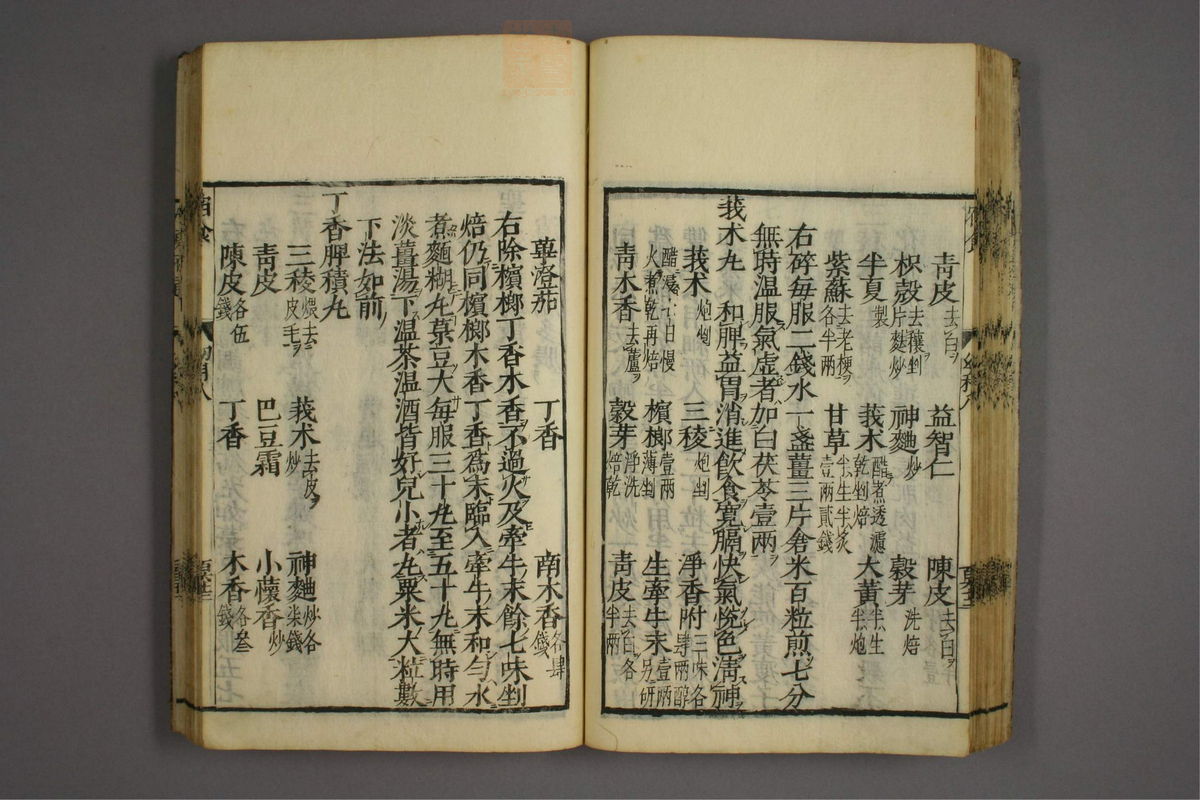 青皮去白 益智仁 陳皮去白
枳殼去穰剉片麩炒 神麯炒 穀芽洗焙
半夏製 莪术醋煮透濾乾剉焙 大黃半生半炮
紫蘇去老梗各半兩 甘草半生半炙壹兩貳錢
右碎每服二錢水一盞薑三片倉米百粒煎七分
無時温服氣虚者加白茯苓壹兩
莪术丸 和脾益胃消進飲食寛膈快氣悅色清神
莪术炮剉 三稜炮剉 淨香附三味各肆兩醇
醋浸七日慢火煮乾再焙 檳榔壹兩薄剉 生牽牛末壹兩另研
青木香去蘆 穀芽淨洗焙乾 青皮去白各半兩
蓽澄茄 丁香 南木香各肆錢
右除檳榔丁香木香不過火及牽牛末餘七味剉
焙仍同檳榔木香丁香爲末臨入牽牛末和匀水
煮麵糊丸菉豆大每服三十丸至五十丸無時用
淡薑湯下温茶温酒皆好兒小者丸粟米大糕數
下法如前
丁香脾積丸
三稜煨去皮毛 莪术去皮炒 神麯炒各柒錢
青皮 巴豆霜 小茴香炒
陳皮各伍錢 丁香 木香各叁錢